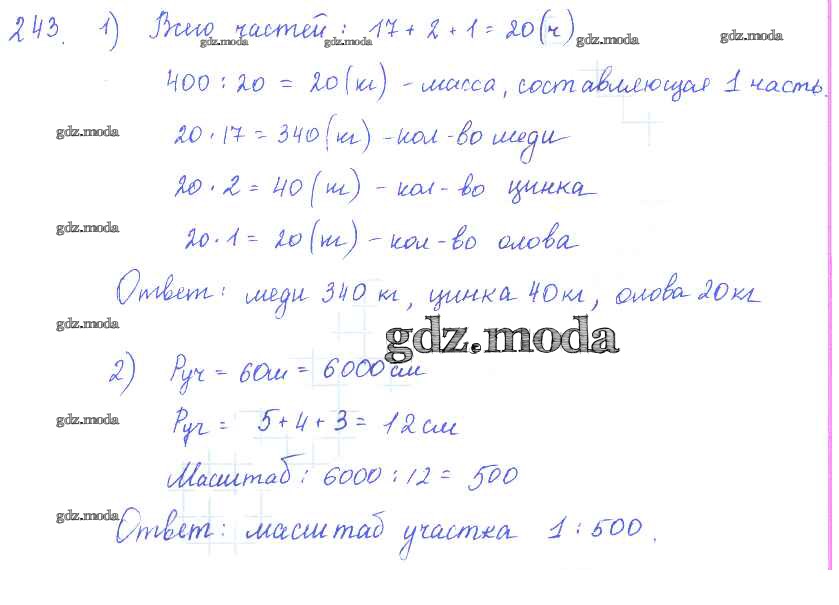 243. 1) Всего частей: 17 + 2 + 1 = 20 (ч)
gdz.moda gdz.moda gdz.moda gdz.moda
400 : 20 = 20 (кг) - масса, составляющая 1 часть.
gdz.moda
20 · 17 = 340 (кг) - кол-во меди
20 · 2 = 40 (кг) - кол-во цинка
gdz.moda
20 · 1 = 20 (кг) - кол-во олова
Ответ: меди 340 кг, цинка 40 кг, олова 20 кг
gdz.moda
gdz.moda
2) Pуч = 60м = 6000 см
gdz.moda
Pуч = 5 + 4 + 3 = 12 см
Масштаб: 6000 : 12 = 500
gdz.moda
Ответ: масштаб участка 1 : 500.